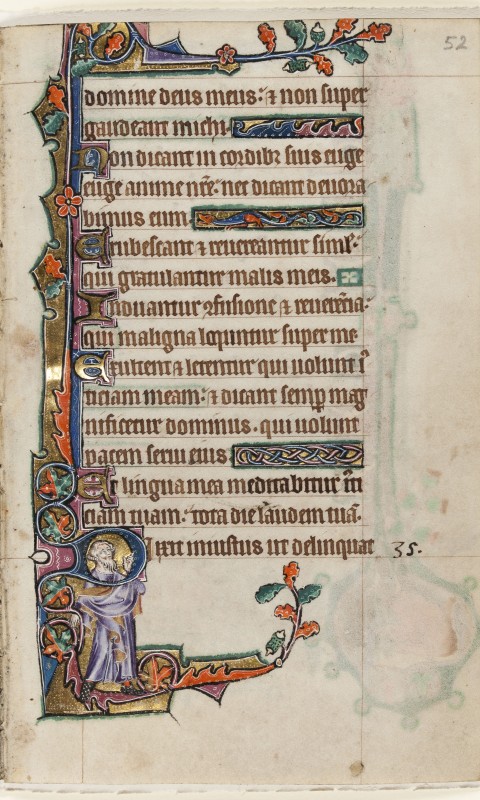 52
domine deus meus: ⁊ non super
gaudeant michi.
Non dicant in cordibꝫ suis euge
euge anime nr̄e: nec dicant deuora
bimus eum.
Erubescant ⁊ reuereantur simł:
qui gratulantur malis meis.
Induantur ꝯfusione ⁊ reuerēcia:
qui maligna locuntur super me
Exultent ⁊ letentur qui uolunt iꝰ
ticiam meam: ⁊ dicant semꝑ mag
nificetur dominus. qui uolunt
pacem serui eius
Et lingua mea meditabitur iꝰti
ciam tuam: tota die laudem tuā.
Dixit iniustus ut delinquat 35.